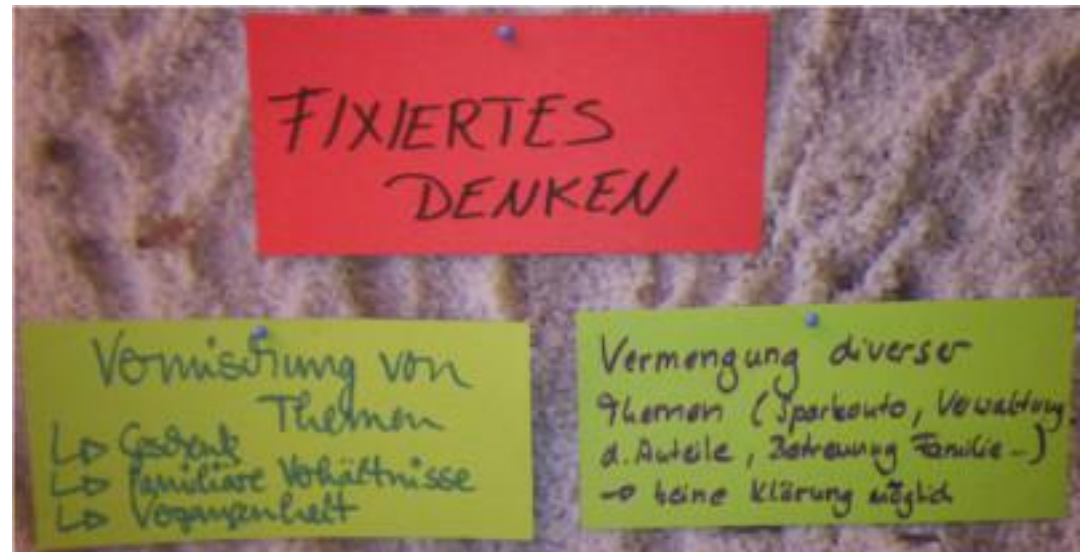 FIXIERTES
DENKEN
Vermischung von
Themen
↳ Geschenk
↳ familiäre Verhältnisse
↳ Vergangenheit
Vermengung diverser
Themen (Sparkonto, Verwaltung
d. Anteile, Betreuung Familie -)
→ keine Klärung möglich